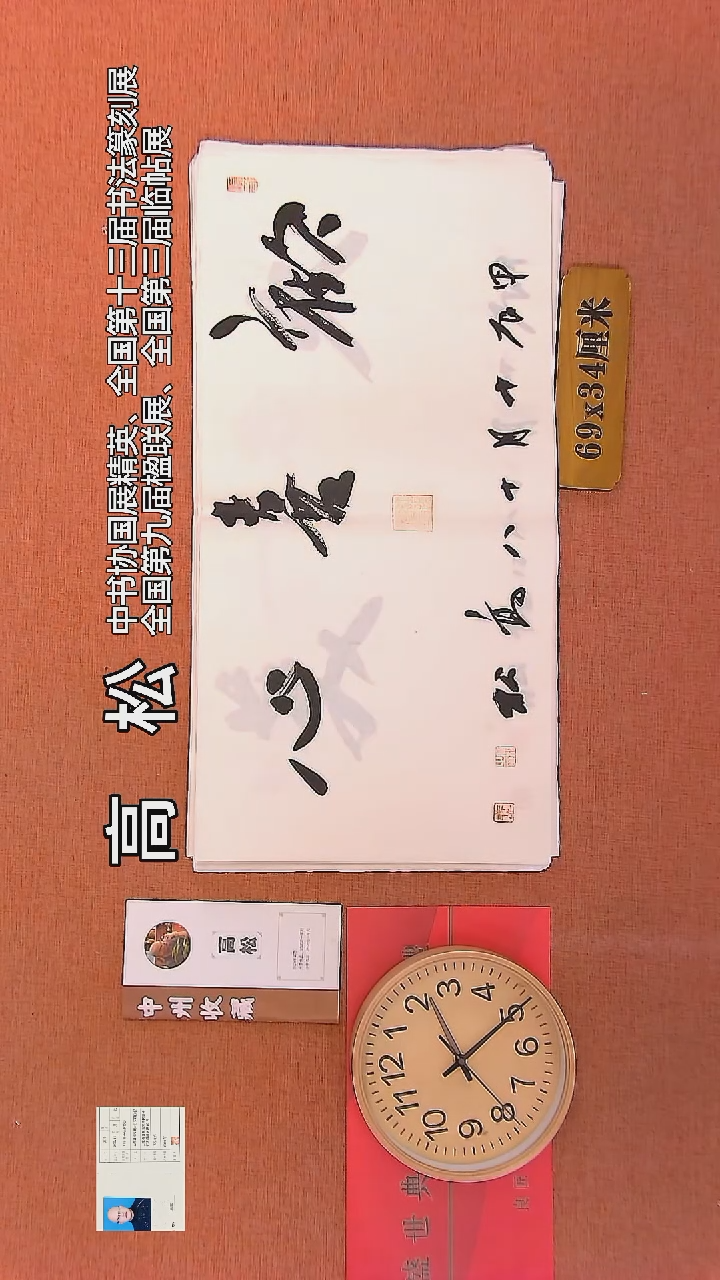 高 松
中书协国展精英、全国第十三届书法篆刻展
全国第九届楹联展、全国第三届临帖展
歡喜心
甲辰十月十八高松
69x34厘米
中州收藏
高松
盛世典
12
1
2
3
4
5
6
7
8
9
10
11